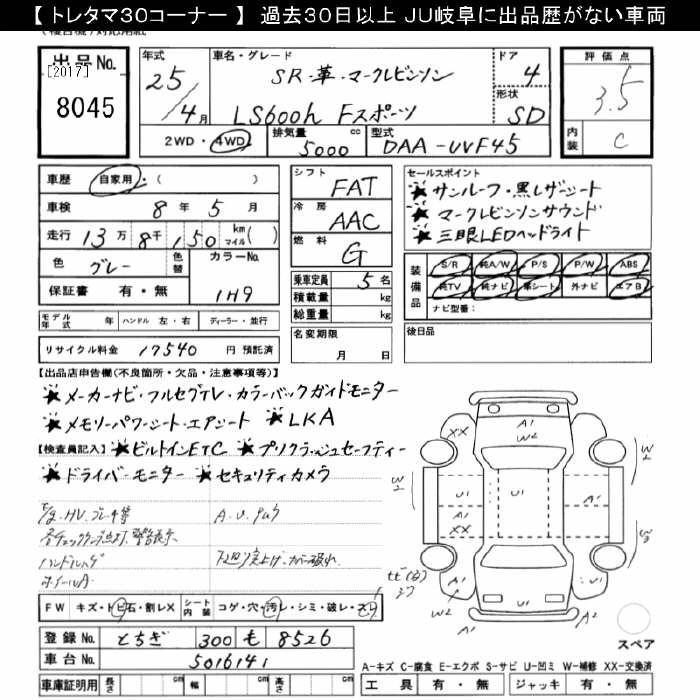 【トレタマ30コーナー】 過去30日以上 JU岐阜に出品歴がない車両
出品No. 年式 車名・グレード ドア 評価点
[2017] 25 SR・革・マークレビンソン 4 3.5
8045 4月 LS600h Fスポーツ 形状 SD
2WD・4WD 排気量 5000 cc 型式 DAA-UVF45 内装 C
車歴 自家用・( ) シフト FAT セールスポイント
車検 8年 5月 冷房 AAC ★サンルーフ・黒レザーシート
走行 13万8千150 km マイル( ) 燃料 G ★マークレビンソンサウンド
★三眼LEDヘッドライト
色 グレー 色替 カラーNo. 1H9
保証書 有・無
乗車定員 5名
積載量 kg
総重量 kg
装備品 S/R 純A/W P/S P/W ABS
純TV 純ナビ 革シート 外ナビ エアB
ナビ型番:
モデル年式 年 ハンドル 左・右 ディーラー・並行
名変期限 月 日
後日品
リサイクル料金 17540 円 預託済
【出品店申告欄(不良箇所・欠品・注意事項等)】
★メーカーナビ・フルセグTV・カラーバックガイドモニター
★メモリーパワーシート・エアシート ★LKA
【検査員記入】 ★ビルトインETC ★プリクラッシュセーフティー
★ドライバーモニター ★セキュリティカメラ
ハンドルスレ
ホイールA
XX A1 W2
W2 U1 U1 U1 A1 W2
A1
XX
A1 W2 A1
FW キズ・トビ石・割レX シート内装 コゲ・穴・汚レ・シミ・破レ・スレ
登録No. とちぎ 300 も 8526
車台No. 5016141
スペア
A-キズ C-腐食 E-エクボ S-サビ U-凹ミ W-補修 XX-交換済
車庫証明用 長さ cm 幅 cm 高さ cm
工具 有・無 ジャッキ 有・無